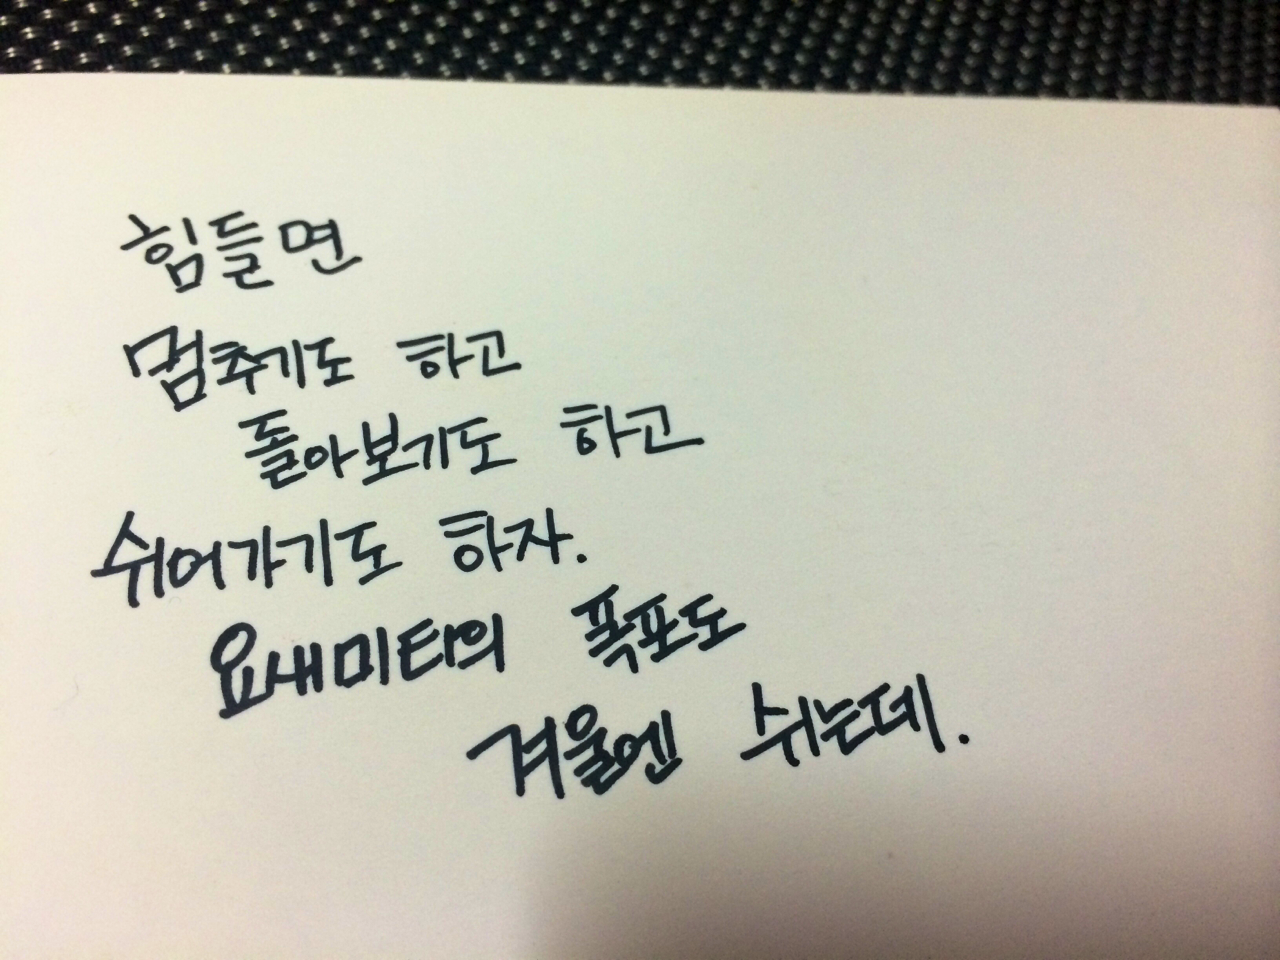 힘들면
멈추기도 하고
돌아보기도 하고
쉬어가기도 하자.
요새미티의 폭포도
겨울엔 쉬는데.